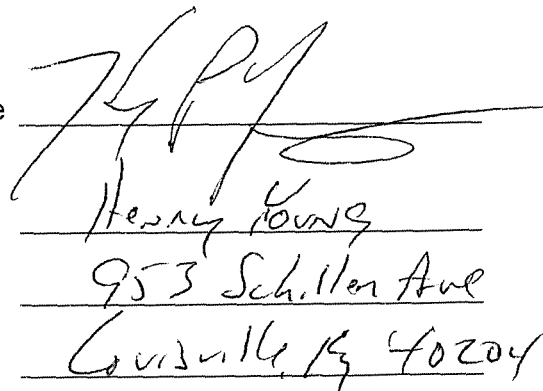 e
Henry Young
953 Schiller Ave
Louisville, Ky 40204